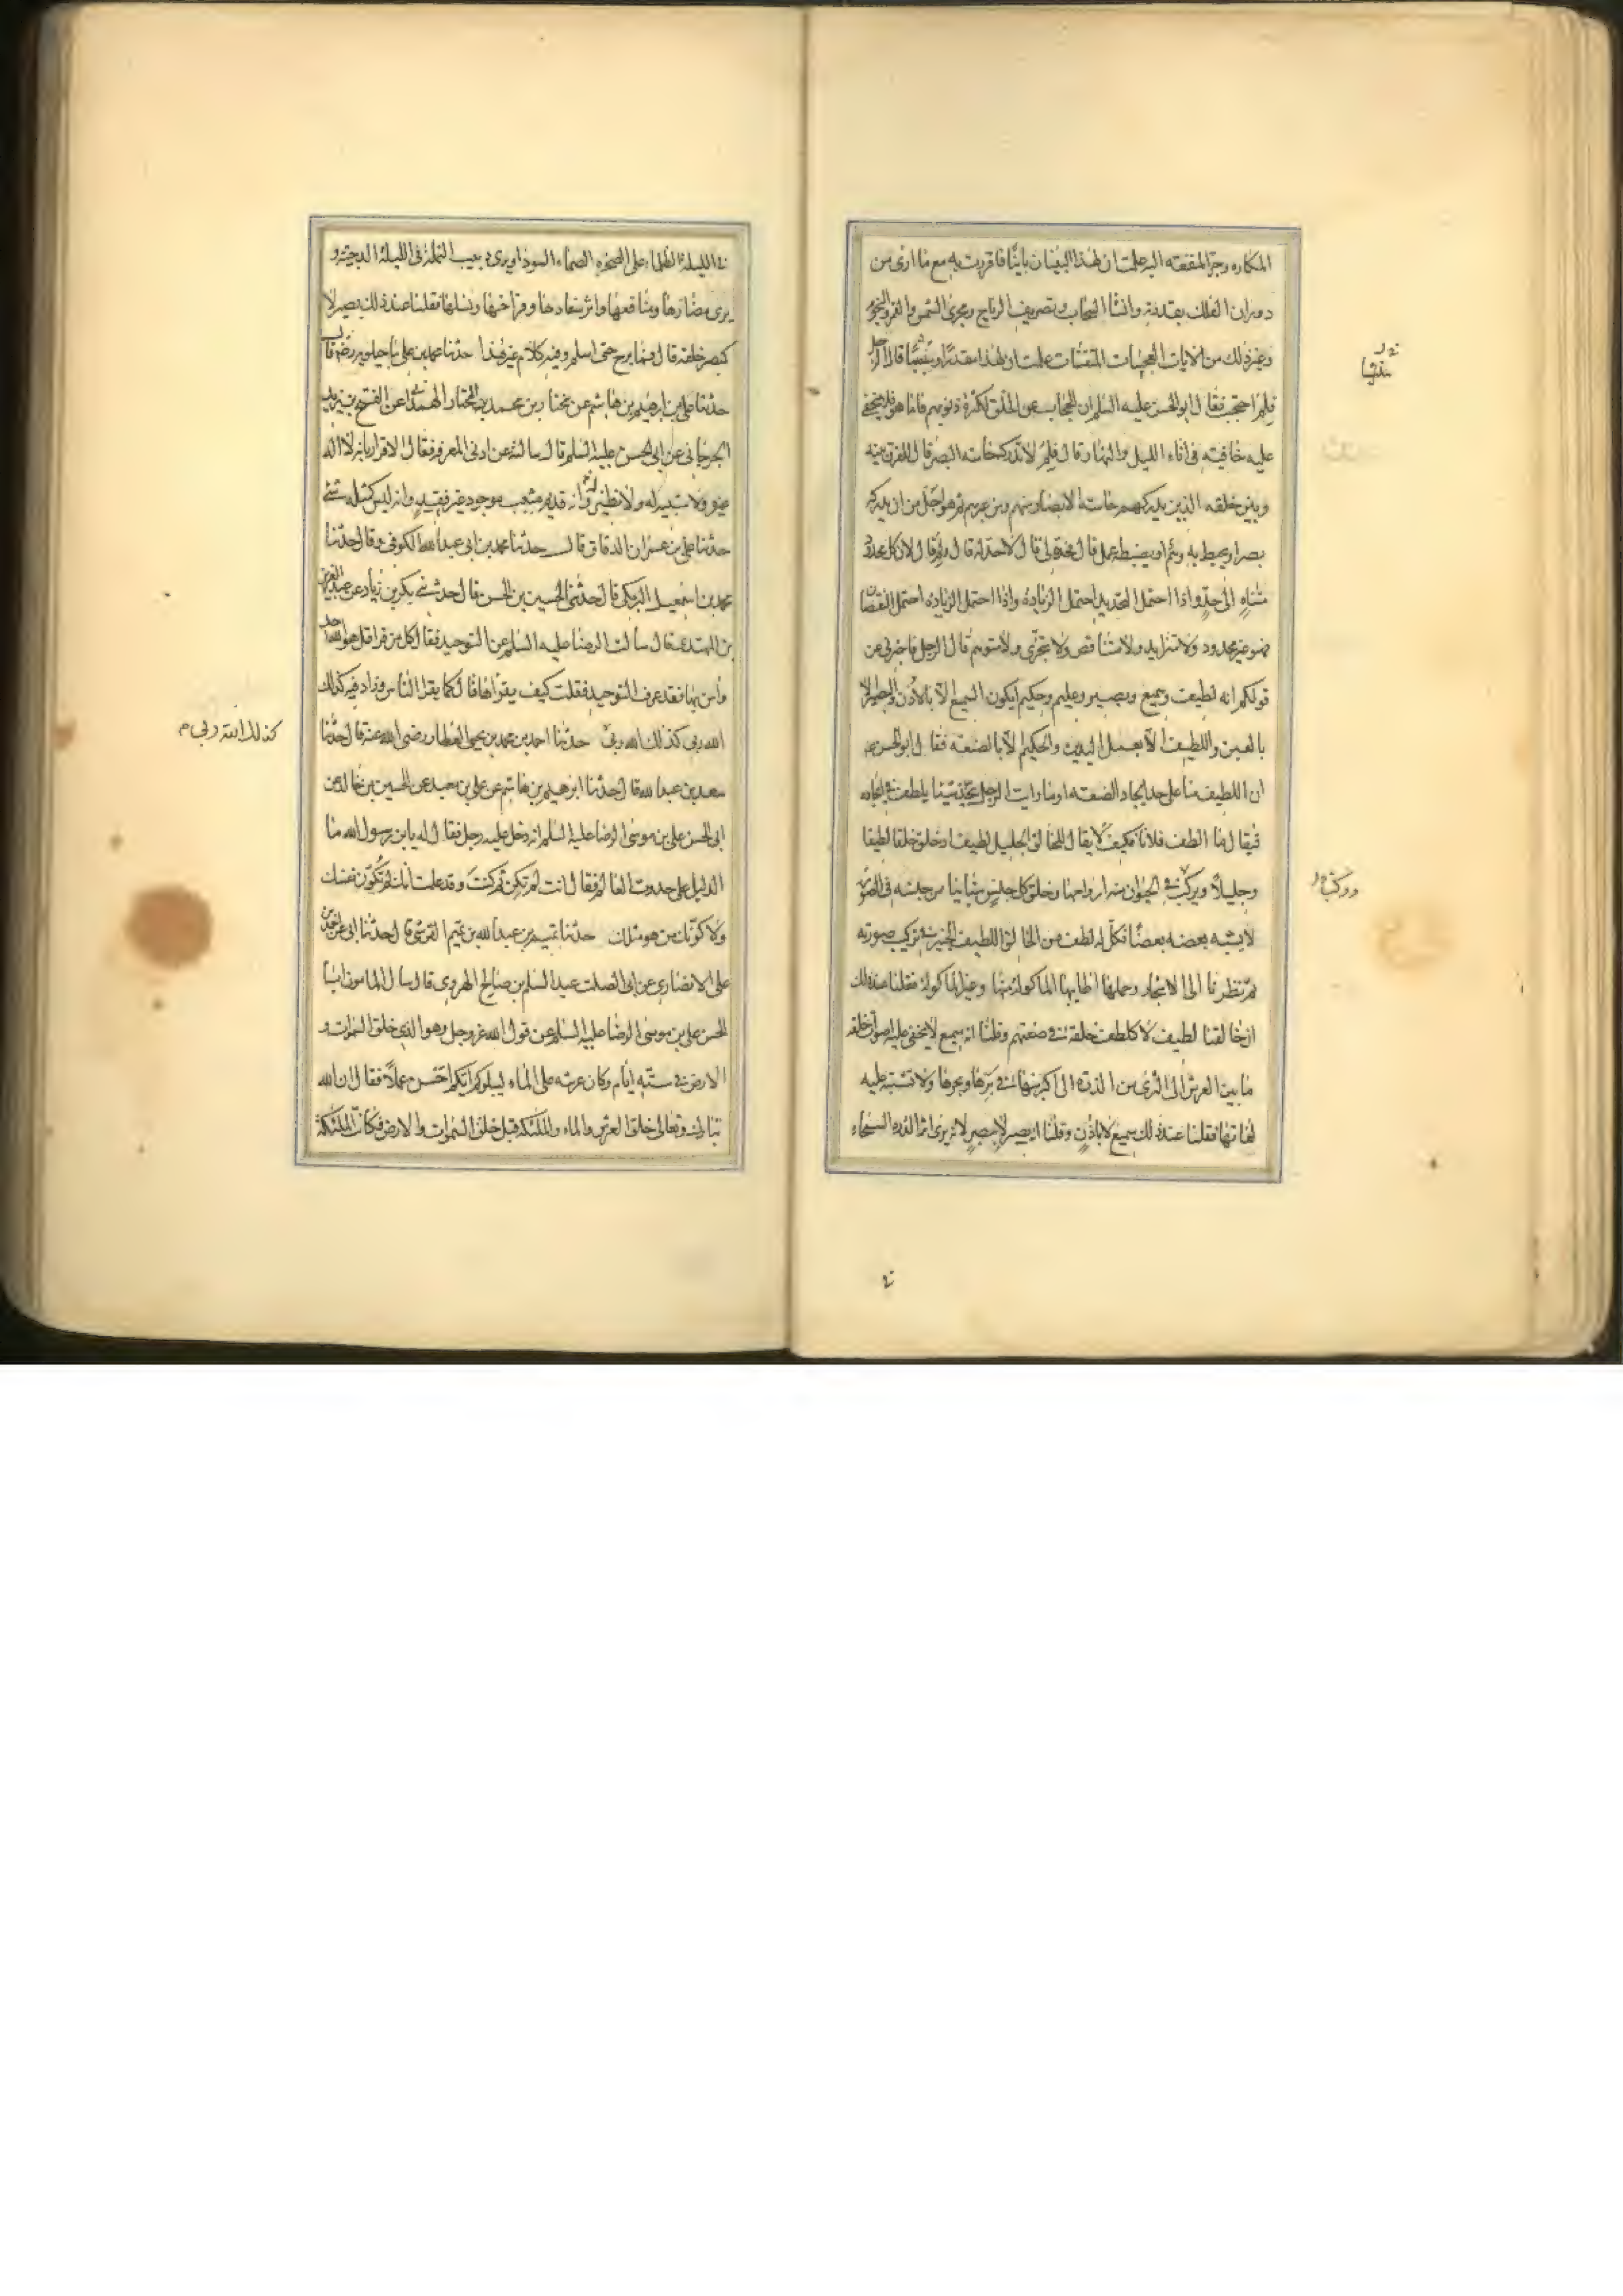 المكاره وجر المنفعة اليه علمت ان لهذا البنيان بانيا فاقررت به مع ما ارى من
دوران الفلك بقدرته وانشاء السحاب وتصريف الرياح ومجرى الشمس والقمر والنجوم
وغير ذلك من الايات العجيبات المتقنات علمت ان لهذا مقدرا ومنشيا قال الرجل
فلم احتجب فقال ابو الحسن عليه السلم ان الحجاب عن الخلق لكثرة ذنوبهم فاما هو فلا يخفى
عليه خافية في اناء الليل والنهار قال فلم لا تدركه حاسة البصر قال للفرق بينه
وبين خلقه الذين يدركهم حاسة الابصار منهم ومن غيرهم ثم هو اجل من ان يدركه
بصر او يحيط به وهم او يضبطه عقل قال فحده لي قال لا حد له قال ولم قال لان كل محدود
متناه الى حد واذا احتمل التحديد احتمل الزيادة واذا احتمل الزيادة احتمل النقصان
فهو غير محدود ولا متزايد ولا متناقص ولا يتجزى ولا متوهم قال الرجل فاخبرني عن
قولكم انه لطيف وسميع وبصير وعليم وحكيم ايكون السميع الا بالاذن والبصير الا
بالعين واللطيف الا بعمل اليدين والحكيم الا بالصنعة فقال ابو الحسن ع
ان اللطيف منا على حد ايجاد الصنعة او ما رايت الرجل يتخذ شيئا يلطف في اتخاذه
فيقال ما الطف فلانا فكيف لا يقال للخالق الجليل لطيف اذ خلق خلقا لطيفا
وجليلا ويركب في الحيوان منه ارواحها وخلق كل جنس متباينا من جنسه في الصورة
لا يشبه بعضه بعضا فكل له لطف من الخالق اللطيف الخبير في تركيب صورته
ثم نظرنا الى الاشجار وحملها اطايبها الماكولة منها وغير الماكولة فقلنا عند ذلك
ان خالقنا لطيف لا كلطف خلقه في صنعتهم وقلنا انه سميع لا يخفى عليه اصوات خلقه
ما بين العرش الى الثرى من الذرة الى اكبر منها في برها وبحرها ولا تشتبه عليه
لغاتها فقلنا عند ذلك سميع لا باذن وقلنا انه بصير لا ببصر لانه يرى اثر الذرة السحماء
وركب
في الليلة الظلماء على الصخرة الصماء السوداء ويرى دبيب النملة في الليلة الدجية و
يرى مضارها ومنافعها واثر سفادها وفراخها ونسلها فقلنا عند ذلك بصير لا
كبصر خلقه قال فما برح حتى اسلم وفيه كلام غير هذا حدثنا محمد بن علي ماجيلويه رضه قال
حدثنا علي بن ابرهيم بن هاشم عن مختار بن محمد بن المختار الهمداني عن الفتح بن يزيد
الجرجاني عن ابي الحسن عليه السلم قال سالته عن ادنى المعرفة فقال الاقرار بانه لا اله
غيره ولا شبيه له ولا نظير وانه قديم مثبت موجود غير فقيد وانه ليس كمثله شئ
حدثنا علي بن عمران الدقاق قال حدثنا محمد بن ابي عبد الله الكوفي وقال حدثنا
محمد بن اسمعيل البرمكي قال حدثني الحسين بن الحسن قال حدثني بكر بن زياد عن عبد العزيز
بن المهتدي قال سالت الرضا عليه السلم عن التوحيد فقال كل من قرا قل هو الله احد
وامن بها فقد عرف التوحيد فقلت كيف يقراها قال كما يقرا الناس وزاد فيه كذلك
الله ربي كذلك الله ربي حدثنا احمد بن محمد بن يحيى العطار رضى الله عنه قال حدثنا
كذلك الله ربي م
سعد بن عبد الله قال حدثنا ابرهيم بن هاشم عن علي بن معبد عن الحسين بن خالد عن
ابي الحسن علي بن موسى الرضا عليه السلم انه دخل عليه رجل فقال له يا بن رسول الله ما
الدليل على حدوث العالم فقال انت لم تكن ثم كنت وقد علمت انك لم تكون نفسك
ولا كونك من هو مثلك حدثنا تميم بن عبد الله بن تميم القرشي قال حدثنا ابي عن احمد بن
علي الانصاري عن ابي الصلت عبد السلم بن صالح الهروي قال سال المامون ابا
الحسن علي بن موسى الرضا عليه السلم عن قول الله عز وجل وهو الذي خلق السموات و
الارض في ستة ايام وكان عرشه على الماء ليبلوكم ايكم احسن عملا فقال ان الله
تبارك وتعالى خلق العرش والماء والملئكة قبل خلق السموات والارض فكانت الملئكة